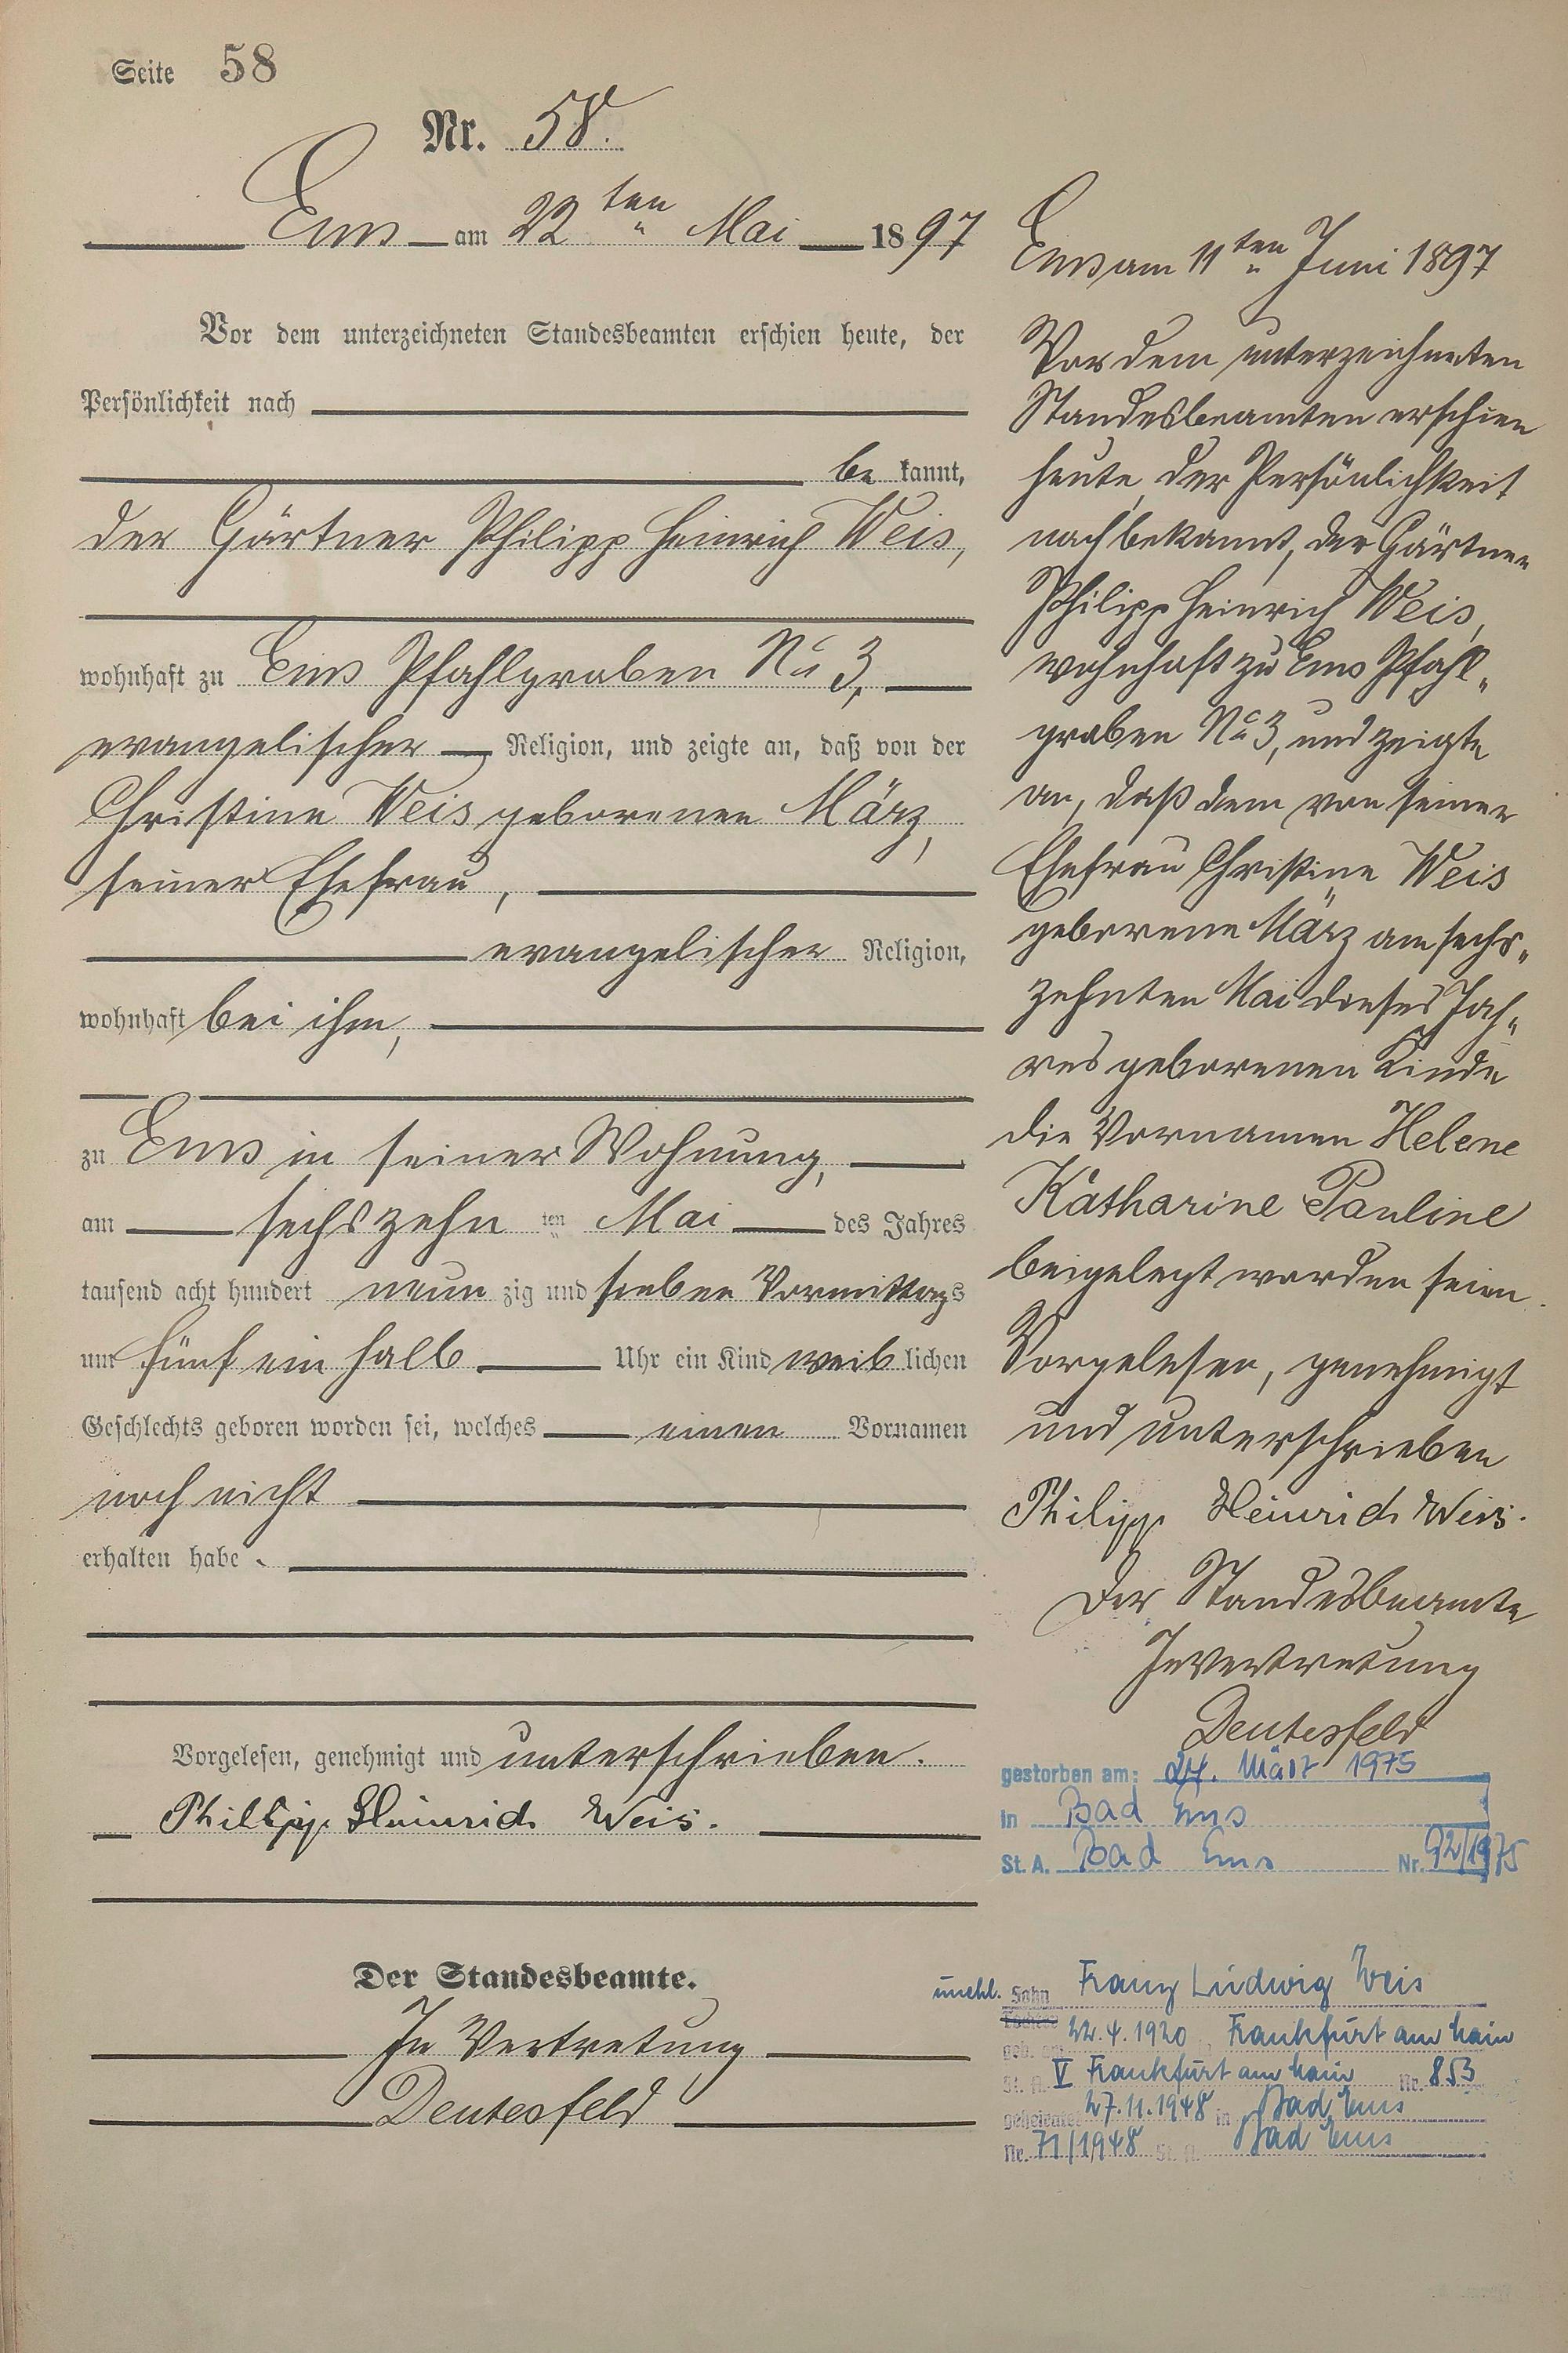 Seite 58
Nr. 58.
Ems am 22ten Mai 1897
Vor dem unterzeichneten Standesbeamten erschien heute, der
Persönlichkeit nach
be kannt,
der Gärtner Philipp Heinrich Weis,
wohnhaft zu Ems Pfahlgraben No 3,
evangelischer Religion, und zeigte an, daß von der
Christine Weis geborenen März,
seiner Ehefrau,
evangelischer Religion,
wohnhaft bei ihm,
zu Ems in seiner Wohnung,
am sechszehn ten Mai des Jahres
tausend acht hundert neun zig und sieben Vormittags
um fünf ein halb Uhr ein Kind weib lichen
Geschlechts geboren worden sei, welches einen Vornamen
noch nicht
erhalten habe.
Vorgelesen, genehmigt und unterschrieben.
Philipp Heinrich Weis.
Der Standesbeamte.
In Vertretung
Deutesfeld
Ems am 11ten Juni 1897
Vor dem unterzeichneten
Standesbeamten erschien
heute, der Persönlichkeit
nach bekannt, der Gärtner
Philipp Heinrich Weis,
wohnhaft zu Ems Pfahl-
graben No 3, und zeigte
an, daß dem von seiner
Ehefrau Christine Weis
geborene März am sechs-
zehnten Mai dieses Jah-
res geborenen Kinde
die Vornamen Helene
Katharine Pauline
beigelegt worden seien.
Vorgelesen, genehmigt
und unterschrieben
Philipp Heinrich Weis.
Der Standesbeamte
In Vertretung
Deutesfeld
gestorben am: 24. März 1975
in Bad Ems
St. A. Bad Ems Nr. 92/1975
unehl. Sohn Franz Ludwig Weis
Tochter
geb. am 22.4.1920, Frankfurt am Main
St. A. V Frankfurt am Main Nr. 853
geheiratet 27.11.1948 in Bad Ems
Nr. 71/1948 St. A. Bad Ems